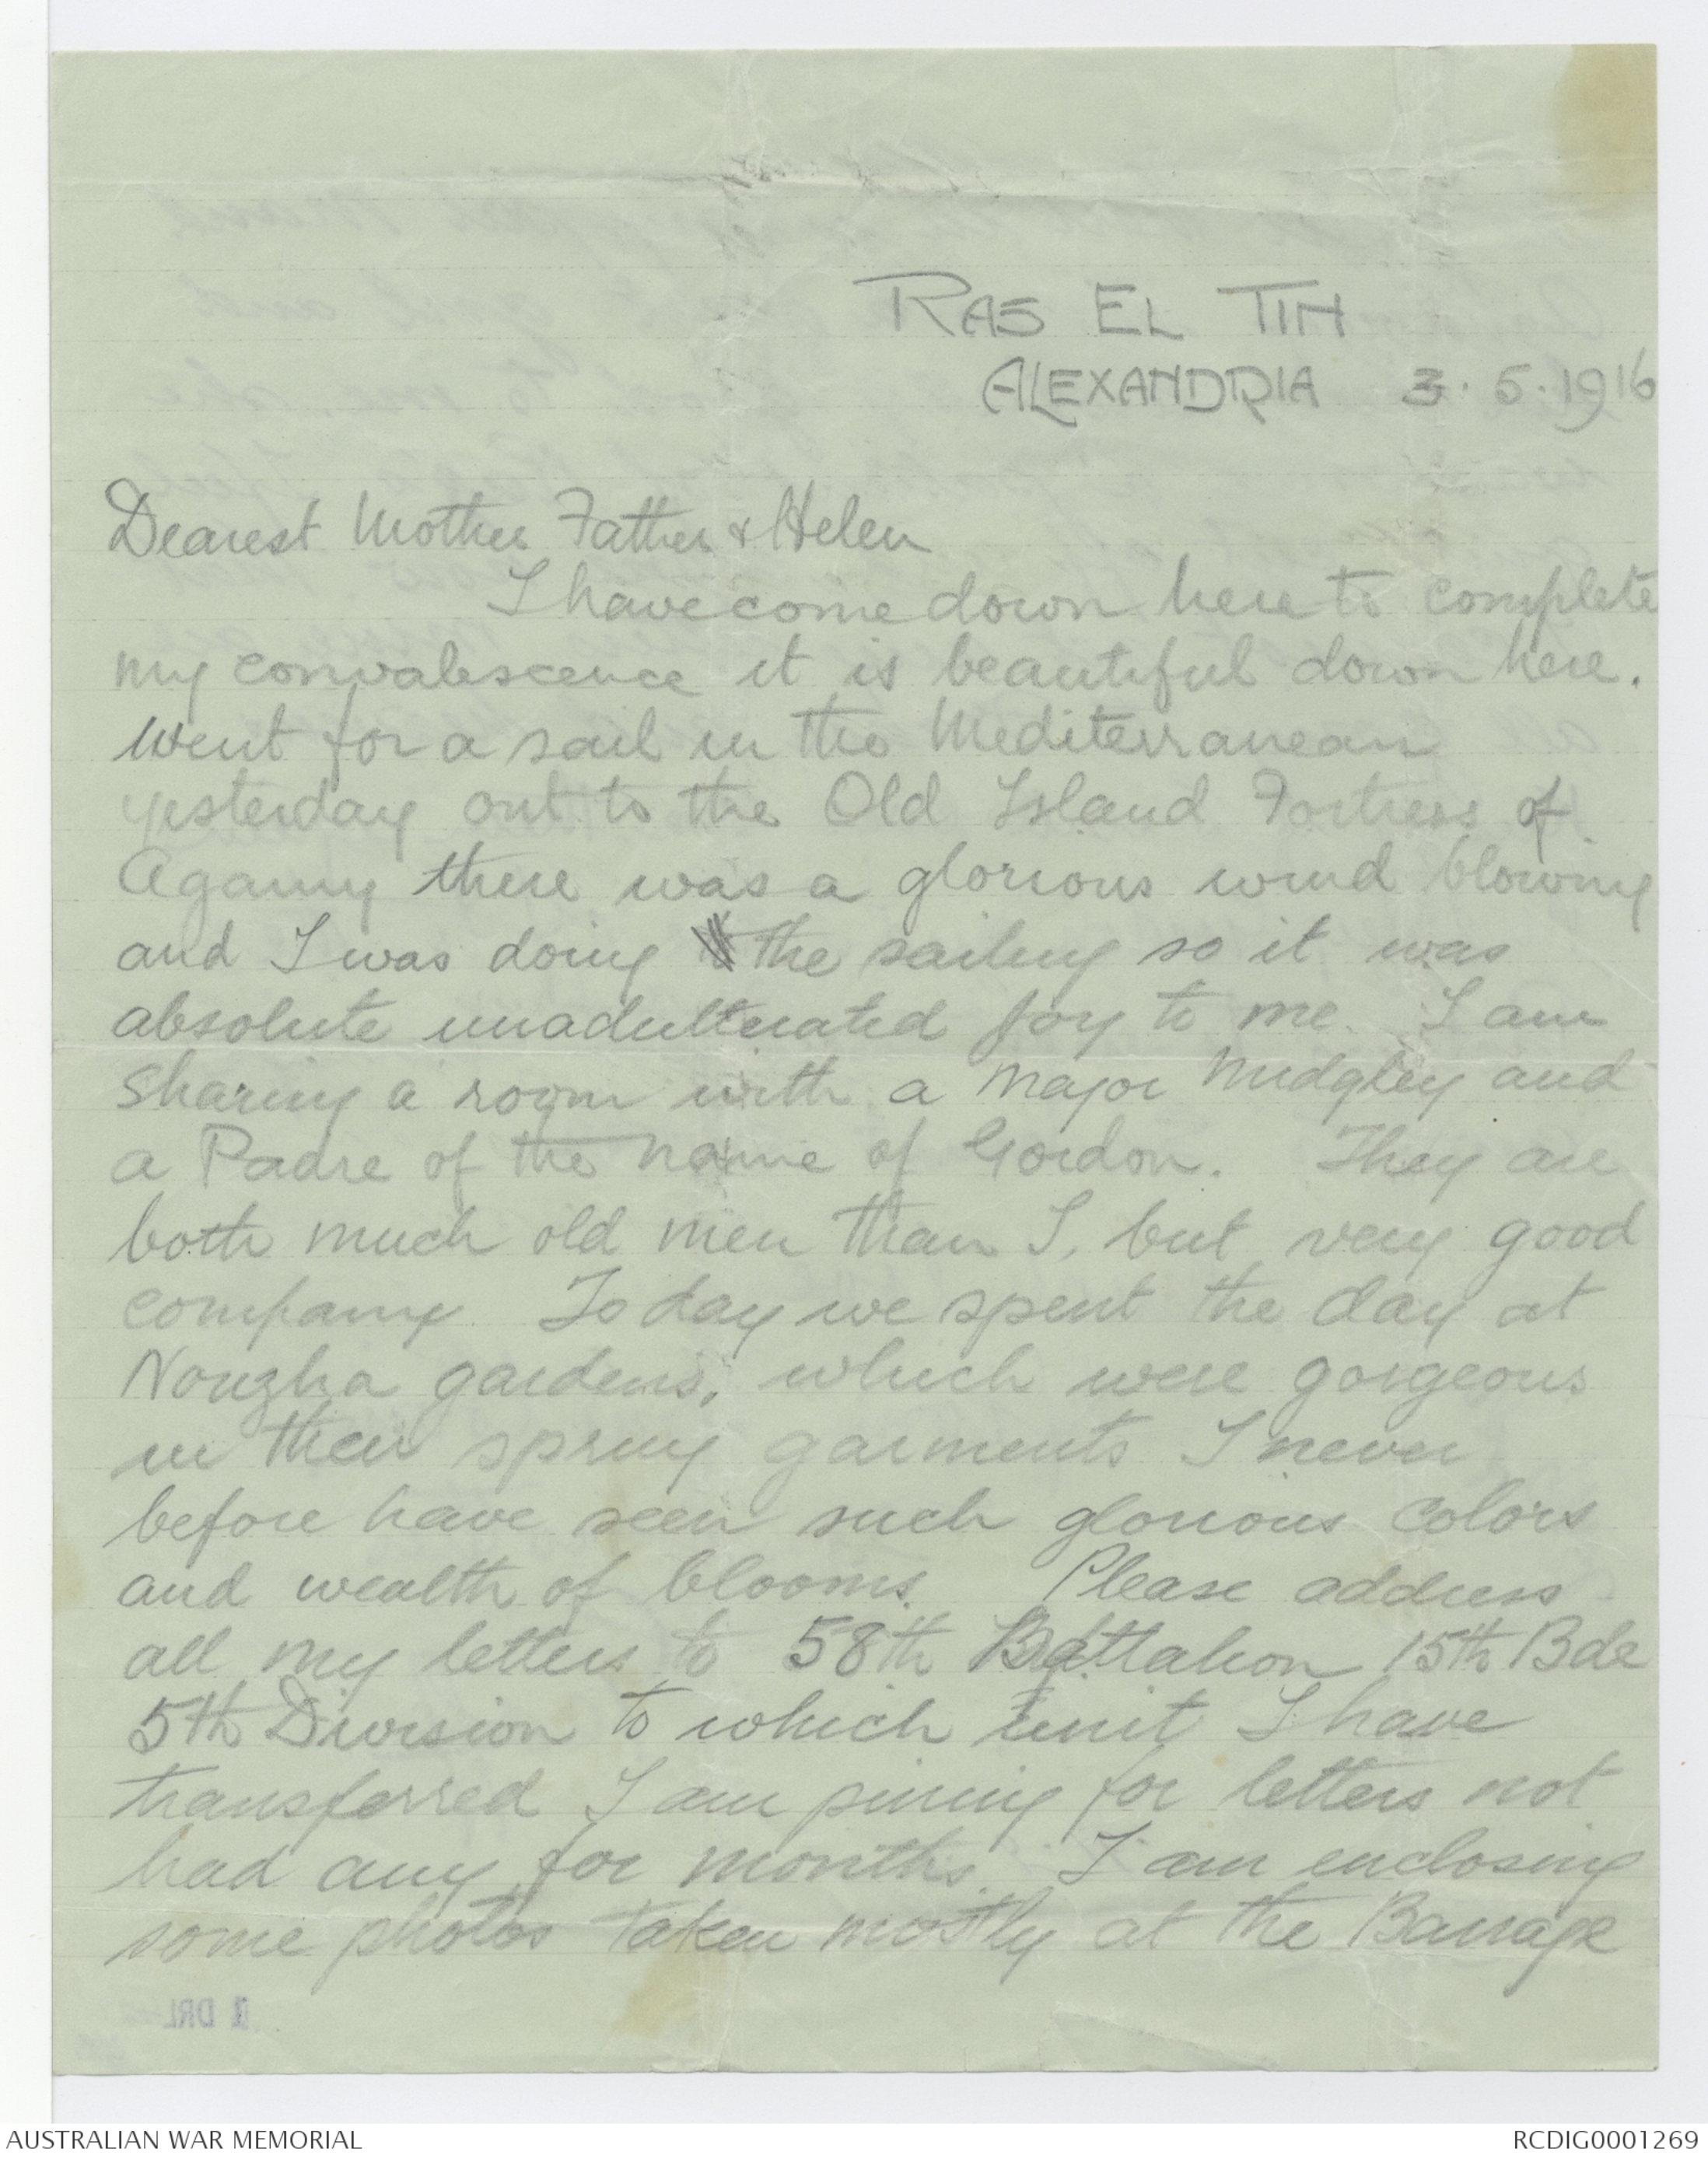 RAS EL TIN
ALEXANDRIA 3.5.1916
Dearest Mother Father & Helen
I have come down here to complete
my convalescence it is beautiful down here.
Went for a sail in the Mediterranean
yesterday out to the Old Island Fortress of
Agamy there was a glorious wind blowing
and I was doing the sailing so it was
absolute unadulterated joy to me. I am
sharing a room with a Major Midgley and
a Padre of the name of Gordon. They are
both much old men than I, but very good
company. Today we spent the day at
Nouzha gardens, which were gorgeous
in their spring garments I never
before have seen such glorious colors
and wealth of blooms. Please address
all my letters to 58th Battalion 15th Bde
5th Division to which unit I have
transferred I am pining for letters not
had any for months. I am enclosing
some photos taken mostly at the Barrage
1 DRL
AUSTRALIAN WAR MEMORIAL
RCDIG0001269